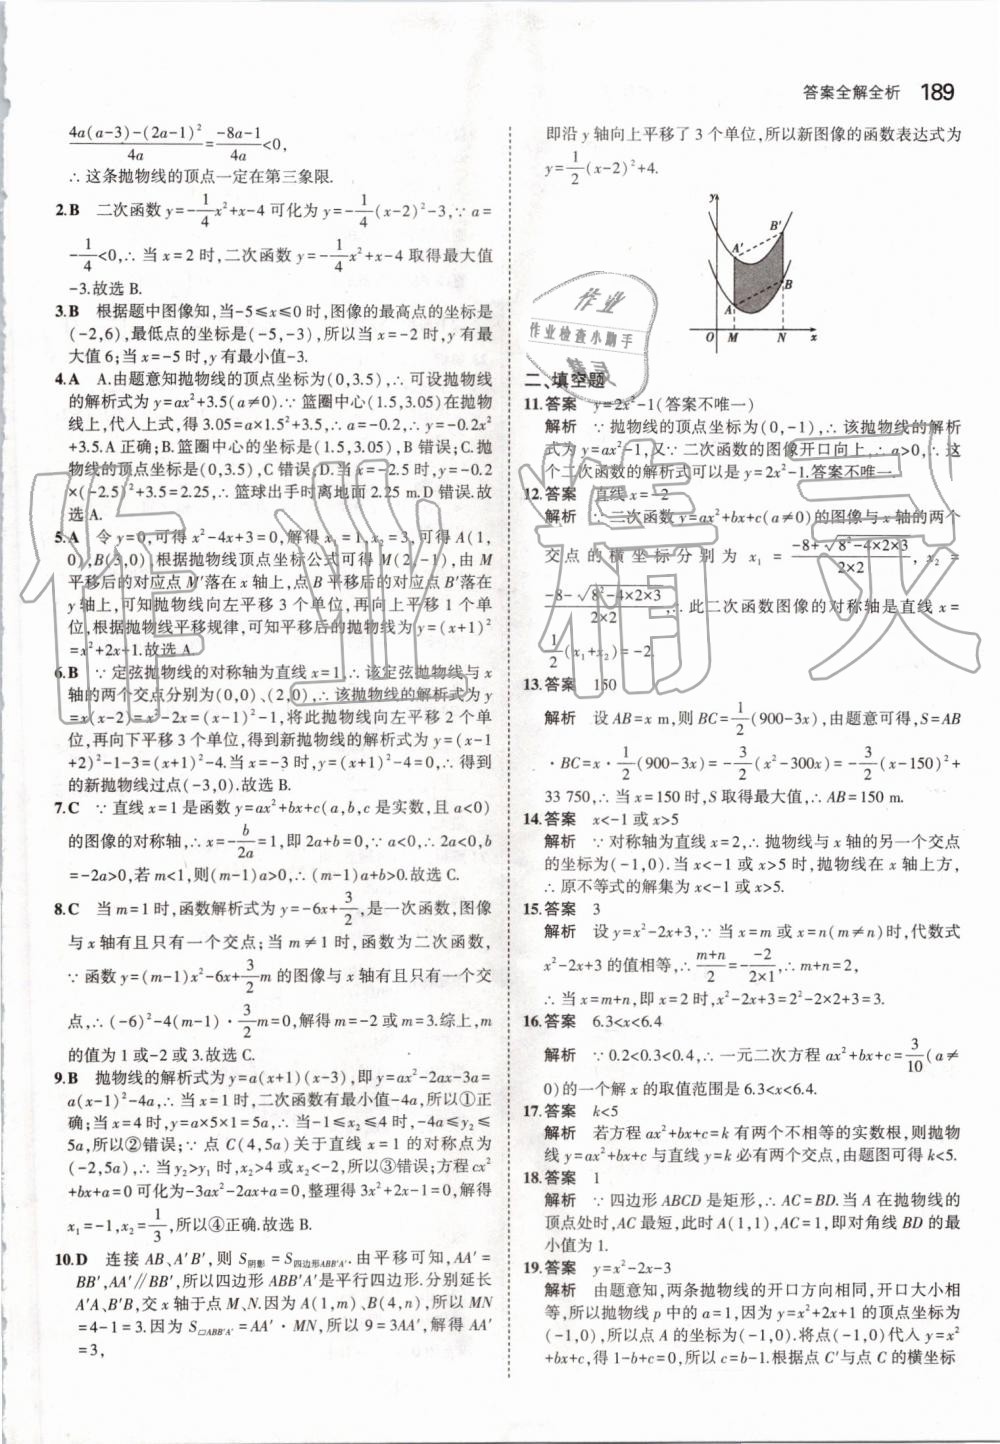 答案全解全析 189
4a(a-3)-(2a-1)²/4a=-8a-1/4a<0,
∴ 这条抛物线的顶点一定在第三象限.
2.B 二次函数 y=-1/4x²+x-4 可化为 y=-1/4(x-2)²-3,∵ a=
-1/4<0,∴ 当 x=2 时,二次函数 y=-1/4x²+x-4 取得最大值
-3.故选 B.
3.B 根据题中图像知,当-5≤x≤0 时,图像的最高点的坐标是
(-2,6),最低点的坐标是(-5,-3),所以当 x=-2 时,y 有最
大值 6;当 x=-5 时,y 有最小值-3.
4.A A.由题意知抛物线的顶点坐标为(0,3.5),∴ 可设抛物线
的解析式为 y=ax²+3.5(a≠0).∵ 篮圈中心(1.5,3.05)在抛物
线上,代入上式,得 3.05=a×1.5²+3.5,∴ a=-0.2,∴ y=-0.2x²
+3.5.A 正确;B.篮圈中心的坐标是(1.5,3.05),B 错误;C.抛
物线的顶点坐标是(0,3.5),C 错误;D.当 x=-2.5 时,y=-0.2
×(-2.5)²+3.5=2.25,∴ 篮球出手时离地面 2.25 m.D 错误.故
选 A.
5.A 令 y=0,可得 x²-4x+3=0,解得 x₁=1,x₂=3,可得 A(1,
0),B(3,0),根据抛物线顶点坐标公式可得 M(2,-1),由 M
平移后的对应点 M′落在 x 轴上,点 B 平移后的对应点 B′落在
y 轴上,可知抛物线向左平移 3 个单位,再向上平移 1 个单
位,根据抛物线平移规律,可知平移后的抛物线为 y=(x+1)²
=x²+2x+1.故选 A.
6.B ∵ 定弦抛物线的对称轴为直线 x=1,∴ 该定弦抛物线与 x
轴的两个交点分别为(0,0)、(2,0),∴ 该抛物线的解析式为 y
=x(x-2)=x²-2x=(x-1)²-1,将此抛物线向左平移 2 个单
位,再向下平移 3 个单位,得到新抛物线的解析式为 y=(x-1
+2)²-1-3=(x+1)²-4.当 x=-3 时,y=(x+1)²-4=0,∴ 得到
的新抛物线过点(-3,0).故选 B.
7.C ∵ 直线 x=1 是函数 y=ax²+bx+c(a,b,c 是实数,且 a<0)
的图像的对称轴,∴ x=-b/2a=1,即 2a+b=0,∵ a<0,∴ 2a<0,b
=-2a>0,若 m<1,则(m-1)a>0,∴ (m-1)a+b>0.故选 C.
8.C 当 m=1 时,函数解析式为 y=-6x+3/2,是一次函数,图像
与 x 轴有且只有一个交点;当 m≠1 时,函数为二次函数,
∵ 函数 y=(m-1)x²-6x+3/2m 的图像与 x 轴有且只有一个交
点,∴ (-6)²-4(m-1)·3/2m=0,解得 m=-2 或 m=3.综上,m
的值为 1 或-2 或 3.故选 C.
9.B 抛物线的解析式为 y=a(x+1)(x-3),即 y=ax²-2ax-3a=
a(x-1)²-4a,∴ 当 x=1 时,二次函数有最小值-4a,所以①正
确;当 x=4 时,y=a×5×1=5a,∴ 当-1≤x₂≤4 时,-4a≤y₂≤
5a,所以②错误;∵ 点 C(4,5a)关于直线 x=1 的对称点为
(-2,5a),∴ 当 y₂>y₁ 时,x₂>4 或 x₂<-2,所以③错误;方程 cx²
+bx+a=0 可化为-3ax²-2ax+a=0,整理得 3x²+2x-1=0,解得
x₁=-1,x₂=1/3,所以④正确.故选 B.
10.D 连接 AB、A′B′,则 S阴影=S四边形ABB′A′.由平移可知,AA′=
BB′,AA′∥BB′,所以四边形 ABB′A′是平行四边形.分别延长
A′A、B′B,交 x 轴于点 M、N.因为 A(1,m)、B(4,n),所以 MN
=4-1=3.因为 S▱ABB′A′=AA′·MN,所以 9=3AA′,解得 AA′
=3,
即沿 y 轴向上平移了 3 个单位,所以新图像的函数表达式为
y=1/2(x-2)²+4.
y
B′
A′
B
A
O M N x
二、填空题
11.答案 y=2x²-1(答案不唯一)
解析 ∵ 抛物线的顶点坐标为(0,-1),∴ 该抛物线的解析
式为 y=ax²-1,又∵ 二次函数的图像开口向上,∴ a>0,∴ 这
个二次函数的解析式可以是 y=2x²-1.答案不唯一.
12.答案 直线 x=-2
解析 ∵ 二次函数 y=ax²+bx+c(a≠0)的图像与 x 轴的两个
交点的横坐标分别为 x₁=-8+√8²-4×2×3/2×2, x₂=
-8-√8²-4×2×3/2×2,∴ 此二次函数图像的对称轴是直线 x=
1/2(x₁+x₂)=-2.
13.答案 150
解析 设 AB=x m,则 BC=1/2(900-3x),由题意可得,S=AB
·BC=x·1/2(900-3x)=-3/2(x²-300x)=-3/2(x-150)²+
33 750,∴ 当 x=150 时,S 取得最大值,∴ AB=150 m.
14.答案 x<-1 或 x>5
解析 ∵ 对称轴为直线 x=2,∴ 抛物线与 x 轴的另一个交点
的坐标为(-1,0).当 x<-1 或 x>5 时,抛物线在 x 轴上方,
∴ 原不等式的解集为 x<-1 或 x>5.
15.答案 3
解析 设 y=x²-2x+3,∵ 当 x=m 或 x=n(m≠n)时,代数式
x²-2x+3 的值相等,∴ m+n/2=--2/2×1,∴ m+n=2,
∴ 当 x=m+n,即 x=2 时,x²-2x+3=2²-2×2+3=3.
16.答案 6.3<x<6.4
解析 ∵ 0.2<0.3<0.4,∴ 一元二次方程 ax²+bx+c=3/10(a≠
0)的一个解 x 的取值范围是 6.3<x<6.4.
17.答案 k<5
解析 若方程 ax²+bx+c=k 有两个不相等的实数根,则抛物
线 y=ax²+bx+c 与直线 y=k 必有两个交点,由题图可得 k<5.
18.答案 1
解析 ∵ 四边形 ABCD 是矩形,∴ AC=BD.当 A 在抛物线的
顶点处时,AC 最短,此时 A(1,1),AC=1,即对角线 BD 的最
小值为 1.
19.答案 y=x²-2x-3
解析 由题意知,两条抛物线的开口方向相同,开口大小相
等,所以抛物线 p 中的 a=1,因为 y=x²+2x+1 的顶点坐标为
(-1,0),所以点 A 的坐标为(-1,0).将点(-1,0)代入 y=x²
+bx+c,得 1-b+c=0,所以 c=b-1.根据点 C′与点 C 的横坐标
作业
作业检查小助手
作业精灵